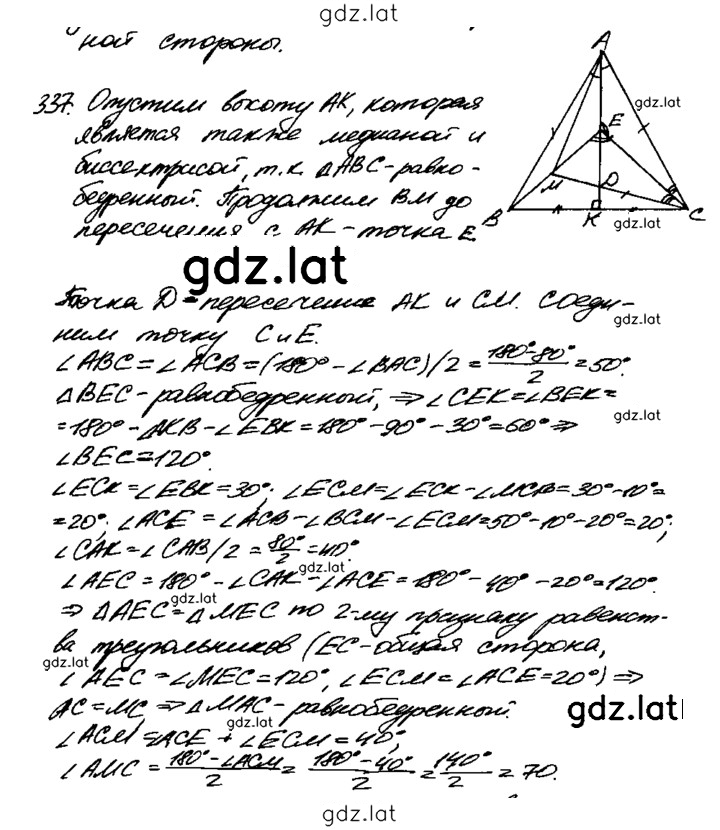 gdz.lat
ной стороны.
A
337. Опустим высоту AK, которая
gdz.lat
является также медианой и
E
биссектрисой, т.к. △ABC-равно-
бедренный. Продолжим BM до
M
D
B
K
C
gdz.lat
пересечения с AK-точка E
gdz.lat
Точка D-пересечение AK и CM. Соеди-
gdz.lat
ним точку C и E.
∠ABC=∠ACB=(180°-∠BAC)/2=(180°-80°)/2=50°.
△BEC-равнобедренный, ⇒∠CEK=∠BEK=
gdz.lat
=180°-∠AKB-∠EBK=180°-90°-30°=60°⇒
∠BEC=120°.
∠ECK=∠EBK=30°; ∠ECM=∠ECK-∠MCB=30°-10°=
gdz.lat
=20°; ∠ACE=∠ACB-∠BCM-∠ECM=50°-10°-20°=20°;
∠CAK=∠CAB/2=80°/2=40°.
gdz.lat
∠AEC=180°-∠CAK-∠ACE=180°-40°-20°=120°.
gdz.lat
⇒△AEC=△MEC по 2-му признаку равенст-
ва треугольников (EC-общая сторона,
gdz.lat
∠AEC=∠MEC=120°, ∠ECM=∠ACE=20°)⇒
AC=MC,⇒△MAC-равнобедренный.
gdz.lat
gdz.lat
∠ACM=ACE+∠ECM=40°;
∠AMC=(180°-∠ACM)/2=(180°-40°)/2=140°/2=70.
gdz.lat